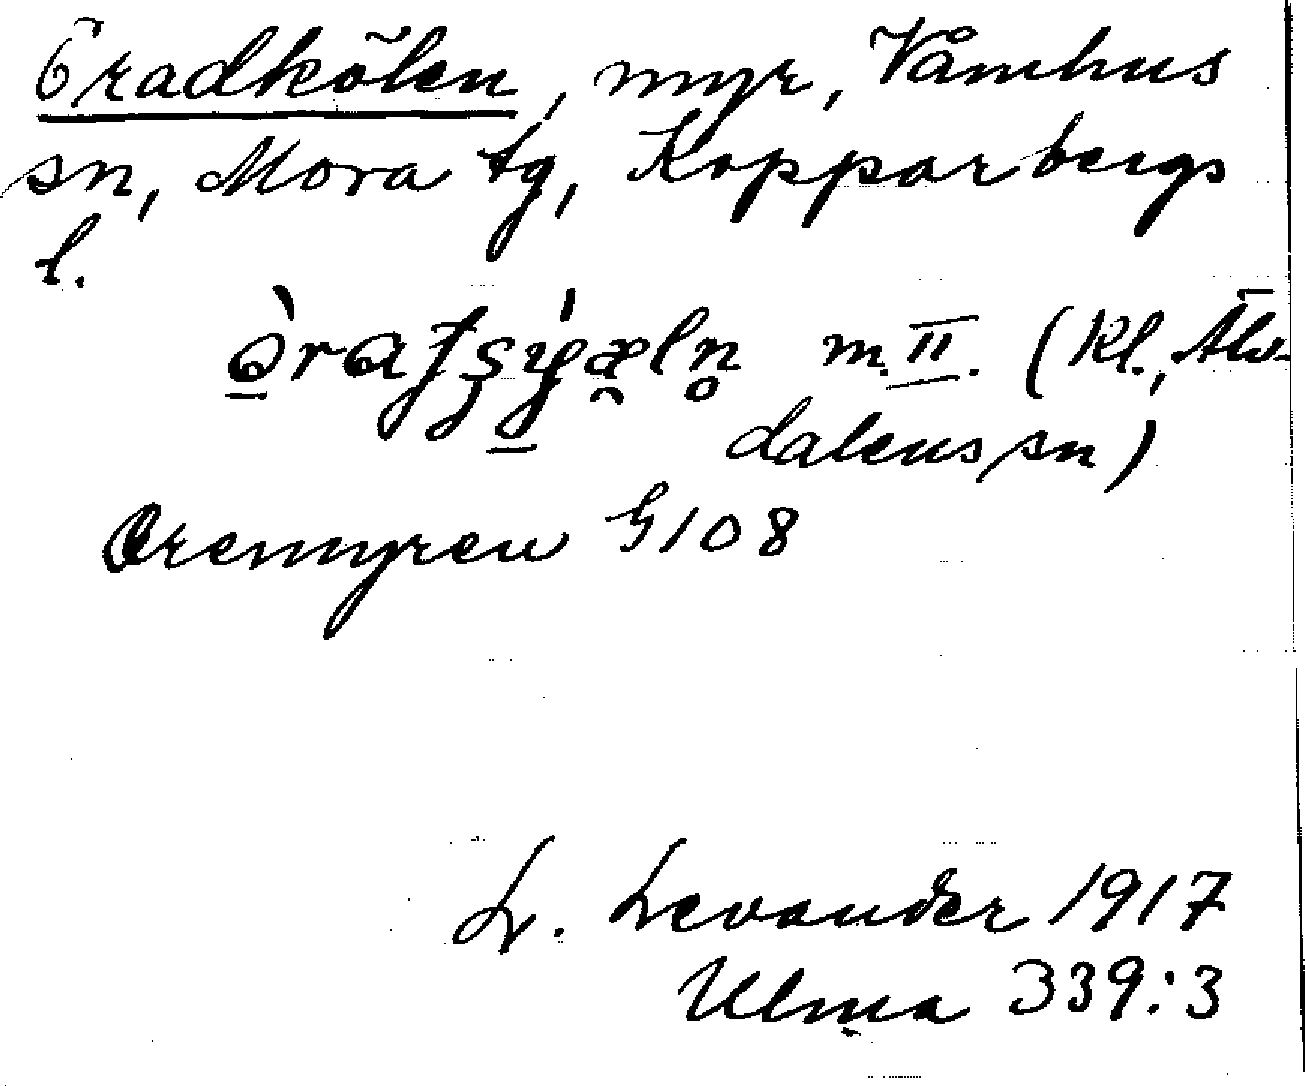 Öradkölen, myr, Våmhus
sn, Mora tg, Kopparbergs
l.
m. II. (Kl., Älv-
dalens sn)
Orenmyren G108
L. Levander 1917
Ulma 339:3